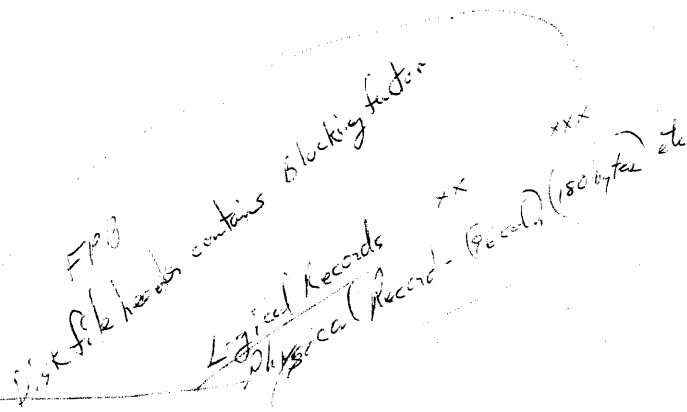 FPB
Disk file header contains Blocking factor
xx xxx
Logical Records
Physical Record - (180 bytes) etc